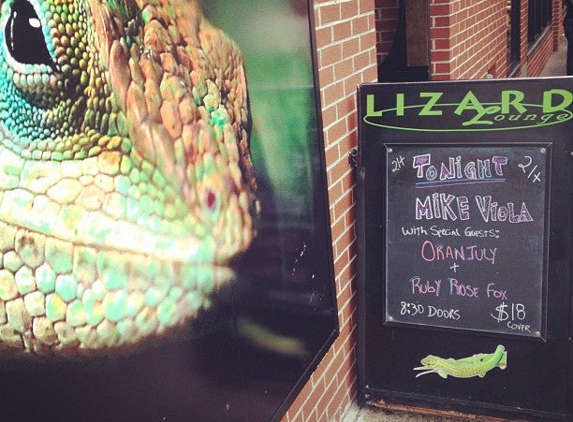 LIZARD
Lounge
TONIGHT
MIKE VIOLA
WITH SPECIAL GUESTS:
ORANJULY
+
RUBY ROSE FOX
8:30 DOORS $18
COVER